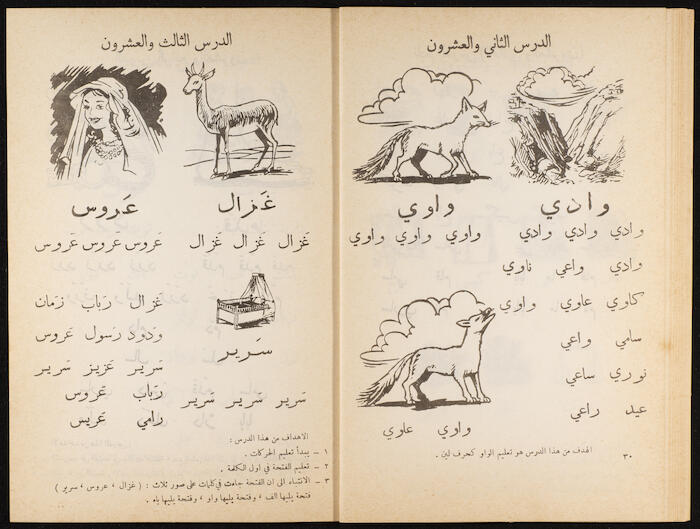 الدرس الثاني والعشرون
وادي واوي
وادي وادي وادي واوي واوي واوي
وادي واعي ناوي
كاوي عاوي واوي
سامي واعي
نوري ساعي
عيد راعي
واوي عاوي
الهدف من هذا الدرس هو تعليم الواو كحرف لين .
٣٠
الدرس الثالث والعشرون
غَزال عَروس
غَزال غَزال غَزال عَروس عَروس عَروس
سَرير
سَرير سَرير سَرير
غَزال رَباب زَمان
وَدود رَسول عَروس
سَرير عَزيز سَرير
رَباب عَروس
رامي عَريس
الاهداف من هذا الدرس :
١ – يبدأ تعليم الحركات .
٢ – تعليم الفتحة في اول الكلمة .
٣ – الانتباه الى ان الفتحة جاءت في كلمات على صور ثلاث : ( غزال ، عروس ، سرير )
فتحة يليها الف ، وفتحة يليها واو ، وفتحة يليها ياء .